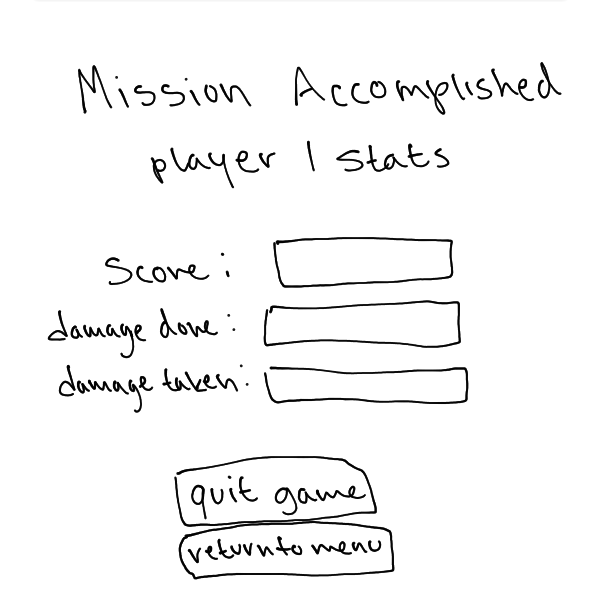 Mission Accomplished
player 1 stats
Score:
damage done:
damage taken:
quit game
return to menu